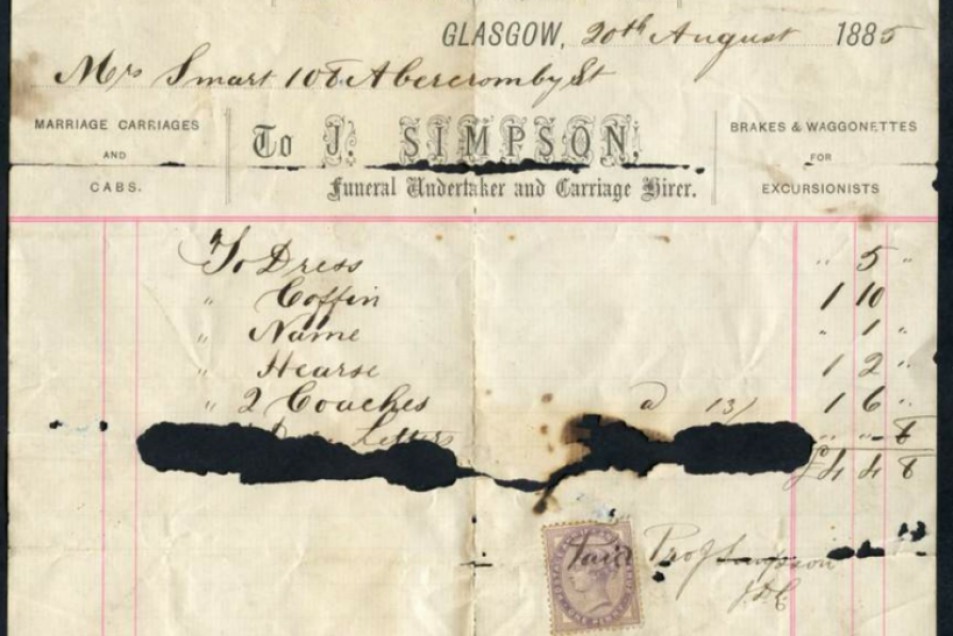 GLASGOW, 20th August 1885
Mrs Smart 108 Abercromby St
MARRIAGE CARRIAGES
AND
CABS.
To J. SIMPSON,
Funeral Undertaker and Carriage Hirer.
BRAKES & WAGGONETTES
FOR
EXCURSIONISTS
To Dress " 5 "
" Coffin 1 10
" Name " 1 "
" Hearse 1 2 "
" 2 Coaches a 13/ 1 6 "
Letters " " 8
£4 4 8
Paid Simpson